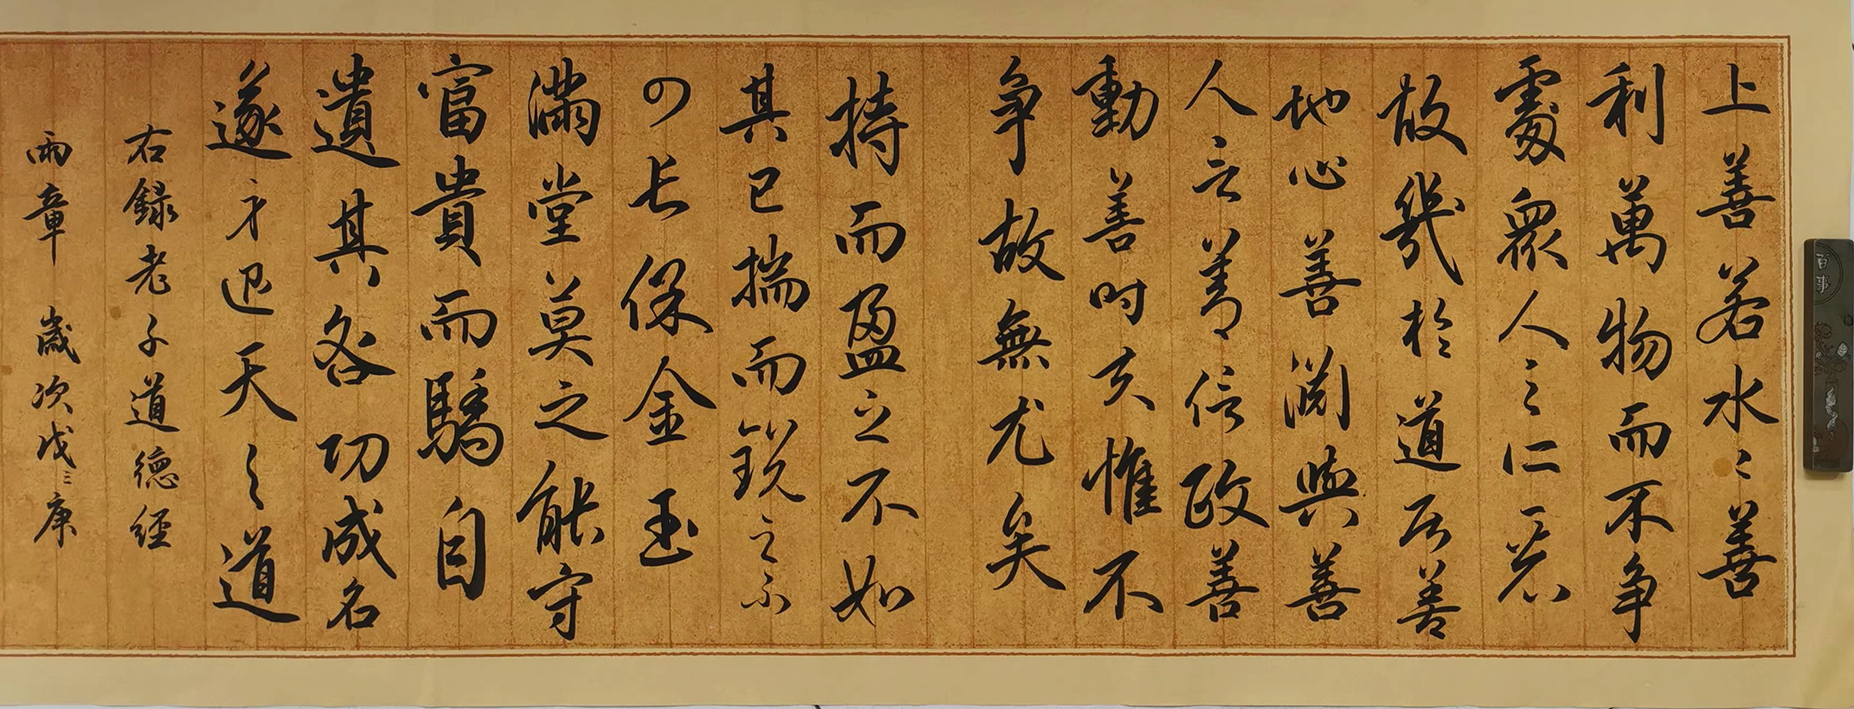 上善若水水善
利萬物而不争
處衆人之所惡
故幾於道居善
地心善淵與善
人言善信政善
動善时夫惟不
争故無尤矣
持而盈之不如
其已揣而銳之不
可长保金玉
滿堂莫之能守
富貴而驕自
遺其咎功成名
遂身退天之道
右録老子道德經
兩章 歲次戊戌庚
百事